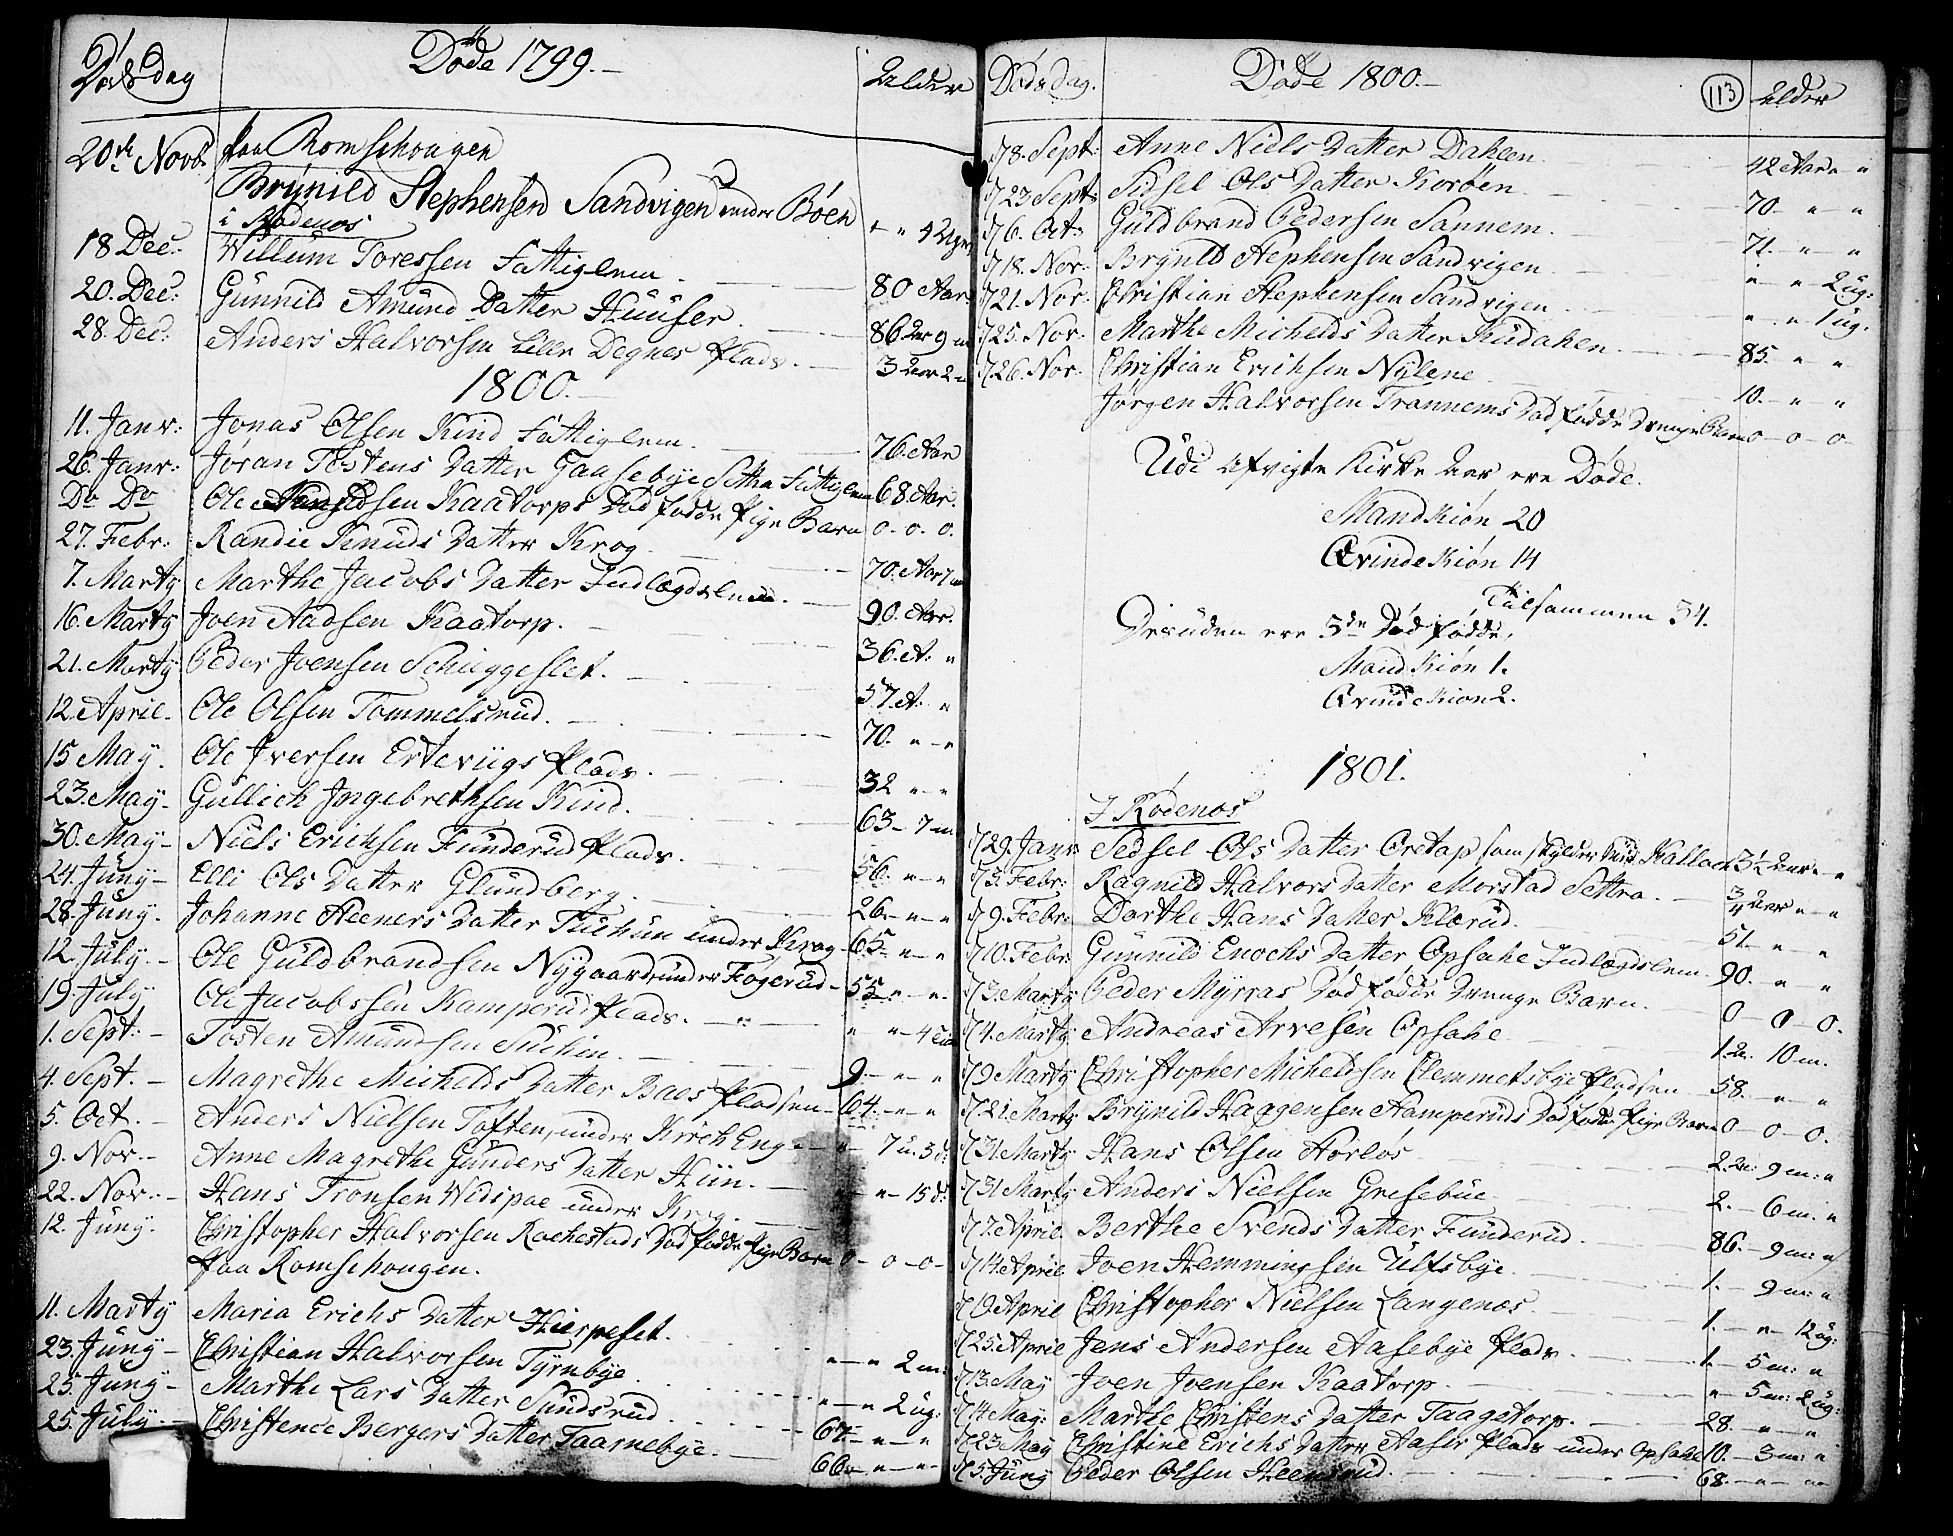 Dødsdag Døde 1799.- Alder
paa Romschougen
20de Novb. Brynild Stephensen Sandvigen under Böen " " 4 Uger
i Rødenæs
18 Dec: Willum Toressen Fattiglem 80 Aar
20. Dec: Gunnild Amund Datter Huuser 86 Aar 9 m
28. Dec: Anders Halvorsen Lille Degnes Plads. 3 Aar 2
1800.
11. Janv: Jonas Olsen Kind Fattiglem 76. Aar
26. Janv: Jöran Tostens Datter Gaasebye Settra Fattiglem 68. Aar.
Do Do Ole Kaatorps Död födde Pige Barn 0. 0. 0.
27. Febr: Randie Knuds Datter Krog 70. Aar 7 m
7. Marty Marthe Jacobs Datter Indlægdslem. 90. Aar.
16. Marty Joen Aadsen Kaatorp. 36. A. "
21. Marty Peder Joensen Schiæggeslet. 57. A. "
12. April. Ole Olsen Tommelsrud. 70. " - "
15 May. Ole Iversen Erteviigs Plads. 32 " - "
23. May - Gullich Ingebrethsen Kind. 63 - 7 m
30. May - Niels Erichsen Funderud Plads. 56. " - "
24. Juny - Elli Ols Datter Glundberg 26. - " - "
28. Juny. Johanne Steeners Datter under Krog 65 - " - "
12. July. - Ole Guldbrandsen Nygaard under Fogerud - 55 - " - "
19. July Ole Jacobssen Kamperud Plads. " " - 4
1. Sept: - Tosten Amundsen Suchin. 9. - " "
4. Sept. - Magrethe Michelds Datter Baas Pladsen - 64. - " - "
5. Oct. - Anders Nielsen Toften under Kirch Eng - " - 7 u. 3 d.
9. Nov. - Anne Magrethe Gunders Datter Hiin. " - 15 d:
22. Nov. - Hans Tronsen Widspae under Krog.
12. Juny. Christopher Halvorsen Rachestads Död födde Pige Barn 0 - 0 - 0 -
paa Romschougen.
11. Marty Maria Erichs Datter Kierpeset. " - " 2 m:
23. Juny - Christian Halvorsen Tyrnbye. " - " 2 ug:
25. Juny - Marthe Lars Datter Sundsrud 67. - " - "
25. July. - Christence Bergers Datter Taarnebye. 66. " - "
Dødsdag. Døde 1800.- 113 Alder
8. Sept: Anne Niels Datter Dahlen 42 Aar " "
23 Sept: Sidsel Ols Datter Koröen 70 - " - "
6. Oct: Guldbrand Pedersen Sannem. 71. - " - "
18. Nov: Brynild Stephensen Sandvigen " - " 2 ug:
21. Nov: Christian Stephensen Sandvigen " - " 1 ug.
25. Nov: Marthe Michelds Datter Kudahlen 85 - " "
26. Nov: Christian Erichsen Nylene 10. - " - "
Jörgen Halvorsen Trannems Död födde Drenge Barn 0 - 0 - 0 -
Udi afvigte Kirke Aar ere Døde.
Mandkiön 20
Qvindekiön 14
Tilsammen 34.
Desuden ere 3de Död födde,
Mandkiön 1.
Qvindekiön 2.
1801.
I Rödenæs
29. Janv Sedsel Ols Datter Ortap som skylder 3½ Aar - "
3. Febr: Ragnild Halvors Datter Morstad Settra. - ¾ Aar " - "
9. Febr: Dorthe Hans Datter Klærud 51. - " - "
10. Febr: Gunnild Enochs Datter Opsahe Indlægdslem 90. - " "
3. Marty Peder Myrras Död födde Drenge Barn. 0 - 0 - 0.
4. Marty Andreas Arvesen Opsahe 1 A. 10 m.
9 Marty Christopher Micheldsen Clemmetsbye Pladsen 58. - " - "
21. Marty Brynild Haagensen Kamperuds Död födde Pige Barn 0 - 0 - 0.
31. Marty Hans Olsen Horlös 2 A: 9 m: "
31. Marty Anders Nielsen Gresebue 2. - 6 m: "
7. April Berthe Svends Datter Funderud 86. - 9 m: "
14 April Joen Hemmingsen Ulfsbye 1. - 9 m: "
19 April Christopher Nielsen Langenæs 1. - " - 12 ug:
25. April Jens Andersen Aasebye Plads 1. - 5 m: "
13. May Joen Joensen Kaatorp " - 5 m: 2 ug:
14. May: Marthe Christens Datter Taagetorp. 28. - " - "
23. May Christine Erichs Datter Aaser Plads under Opsahe 10. - 3 m: "
5. Juny Peder Olsen Heensrud. 68. - " - "